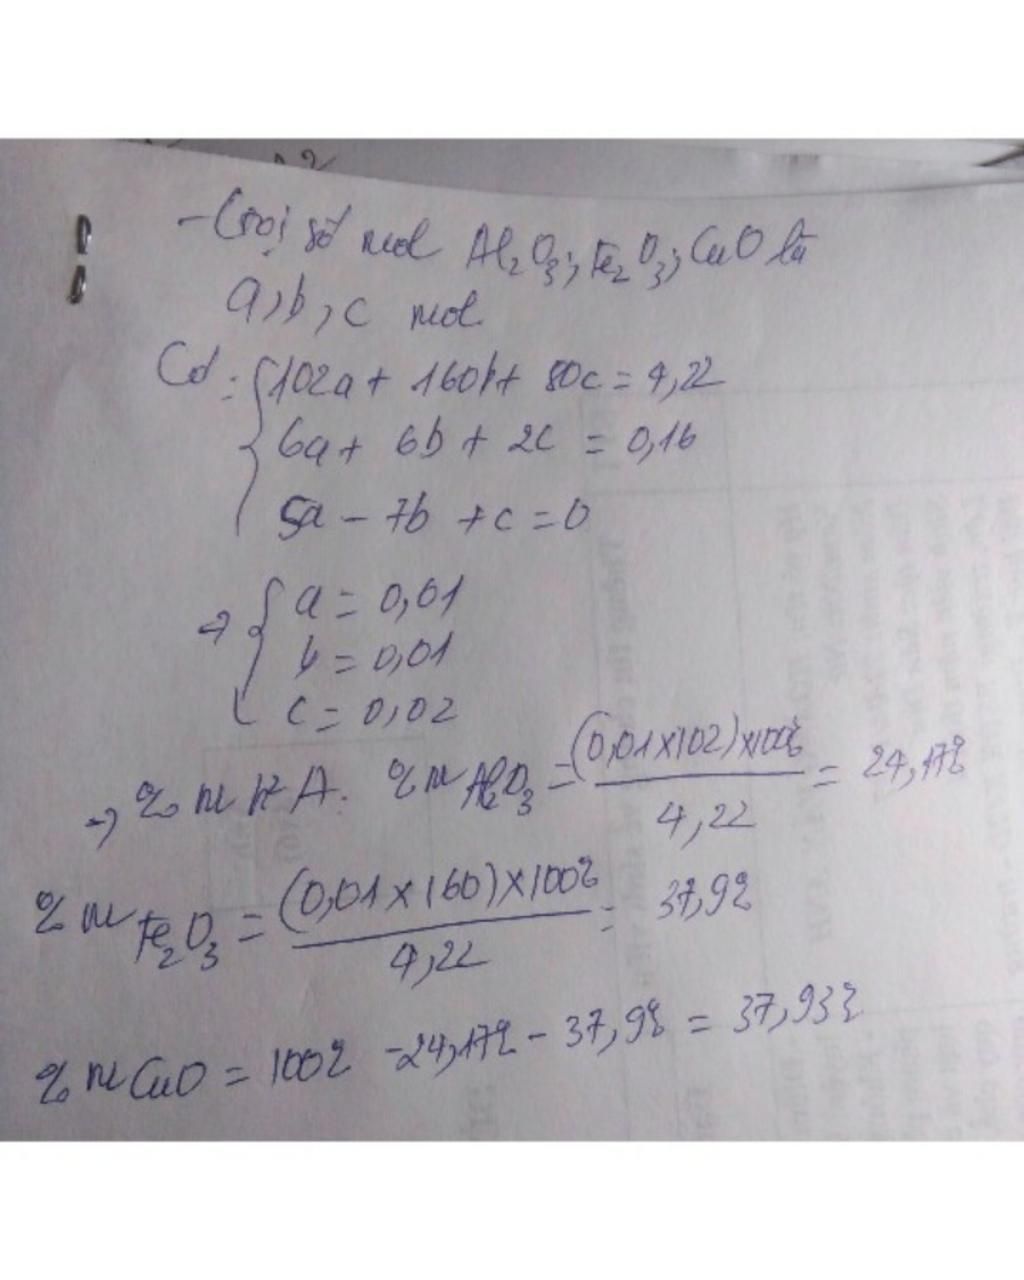 - Gọi số mol Al2O3; Fe2O3; CuO là
a, b, c mol
Có: { 102a + 160b + 80c = 4,22
6a + 6b + 2c = 0,16
5a - 7b + c = 0
→ { a = 0,01
b = 0,01
c = 0,02
→ % m A. % m Al2O3 = (0,01x102)x100% / 4,22 = 24,17%
% m Fe2O3 = (0,01x160)x100% / 4,22 = 37,9%
% m CuO = 100% - 24,17% - 37,9% = 37,93%